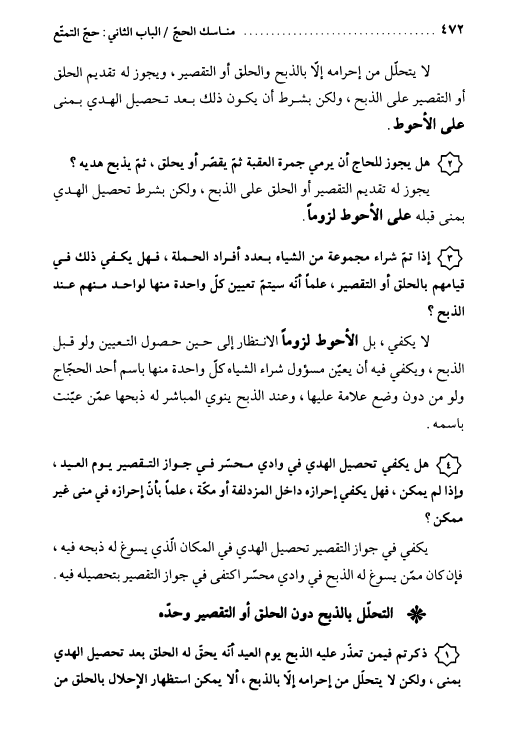 ٤٧٢ .................................. مناسك الحجّ / الباب الثاني : حجّ التمتّع
لا يتحلّل من إحرامه إلّا بالذبح والحلق أو التقصير ، ويجوز له تقديم الحلق
أو التقصير على الذبح ، ولكن بشرط أن يكون ذلك بعد تحصيل الهدي بمنى
على الأحوط .
٢ هل يجوز للحاج أن يرمي جمرة العقبة ثمّ يقصّر أو يحلق ، ثمّ يذبح هديه ؟
يجوز له تقديم التقصير أو الحلق على الذبح ، ولكن بشرط تحصيل الهدي
بمنى قبله على الأحوط لزوماً .
٣ إذا تمّ شراء مجموعة من الشياه بعدد أفراد الحملة ، فهل يكفي ذلك في
قيامهم بالحلق أو التقصير ، علماً أنّه سيتمّ تعيين كلّ واحدة منها لواحد منهم عند
الذبح ؟
لا يكفي ، بل الأحوط لزوماً الانتظار إلى حين حصول التعيين ولو قبل
الذبح ، ويكفي فيه أن يعيّن مسؤول شراء الشياه كلّ واحدة منها باسم أحد الحجّاج
ولو من دون وضع علامة عليها ، وعند الذبح ينوي المباشر له ذبحها عمّن عيّنت
باسمه .
٤ هل يكفي تحصيل الهدي في وادي محسّر في جواز التقصير يوم العيد ،
وإذا لم يمكن ، فهل يكفي إحرازه داخل المزدلفة أو مكّة ، علماً بأنّ إحرازه في منى غير
ممكن ؟
يكفي في جواز التقصير تحصيل الهدي في المكان الّذي يسوغ له ذبحه فيه ،
فإن كان ممّن يسوغ له الذبح في وادي محسّر اكتفى في جواز التقصير بتحصيله فيه .
❋ التحلّل بالذبح دون الحلق أو التقصير وحدّه
١ ذكرتم فيمن تعذّر عليه الذبح يوم العيد أنّه يحقّ له الحلق بعد تحصيل الهدي
بمنى ، ولكن لا يتحلّل من إحرامه إلّا بالذبح ، ألا يمكن استظهار الإحلال بالحلق من